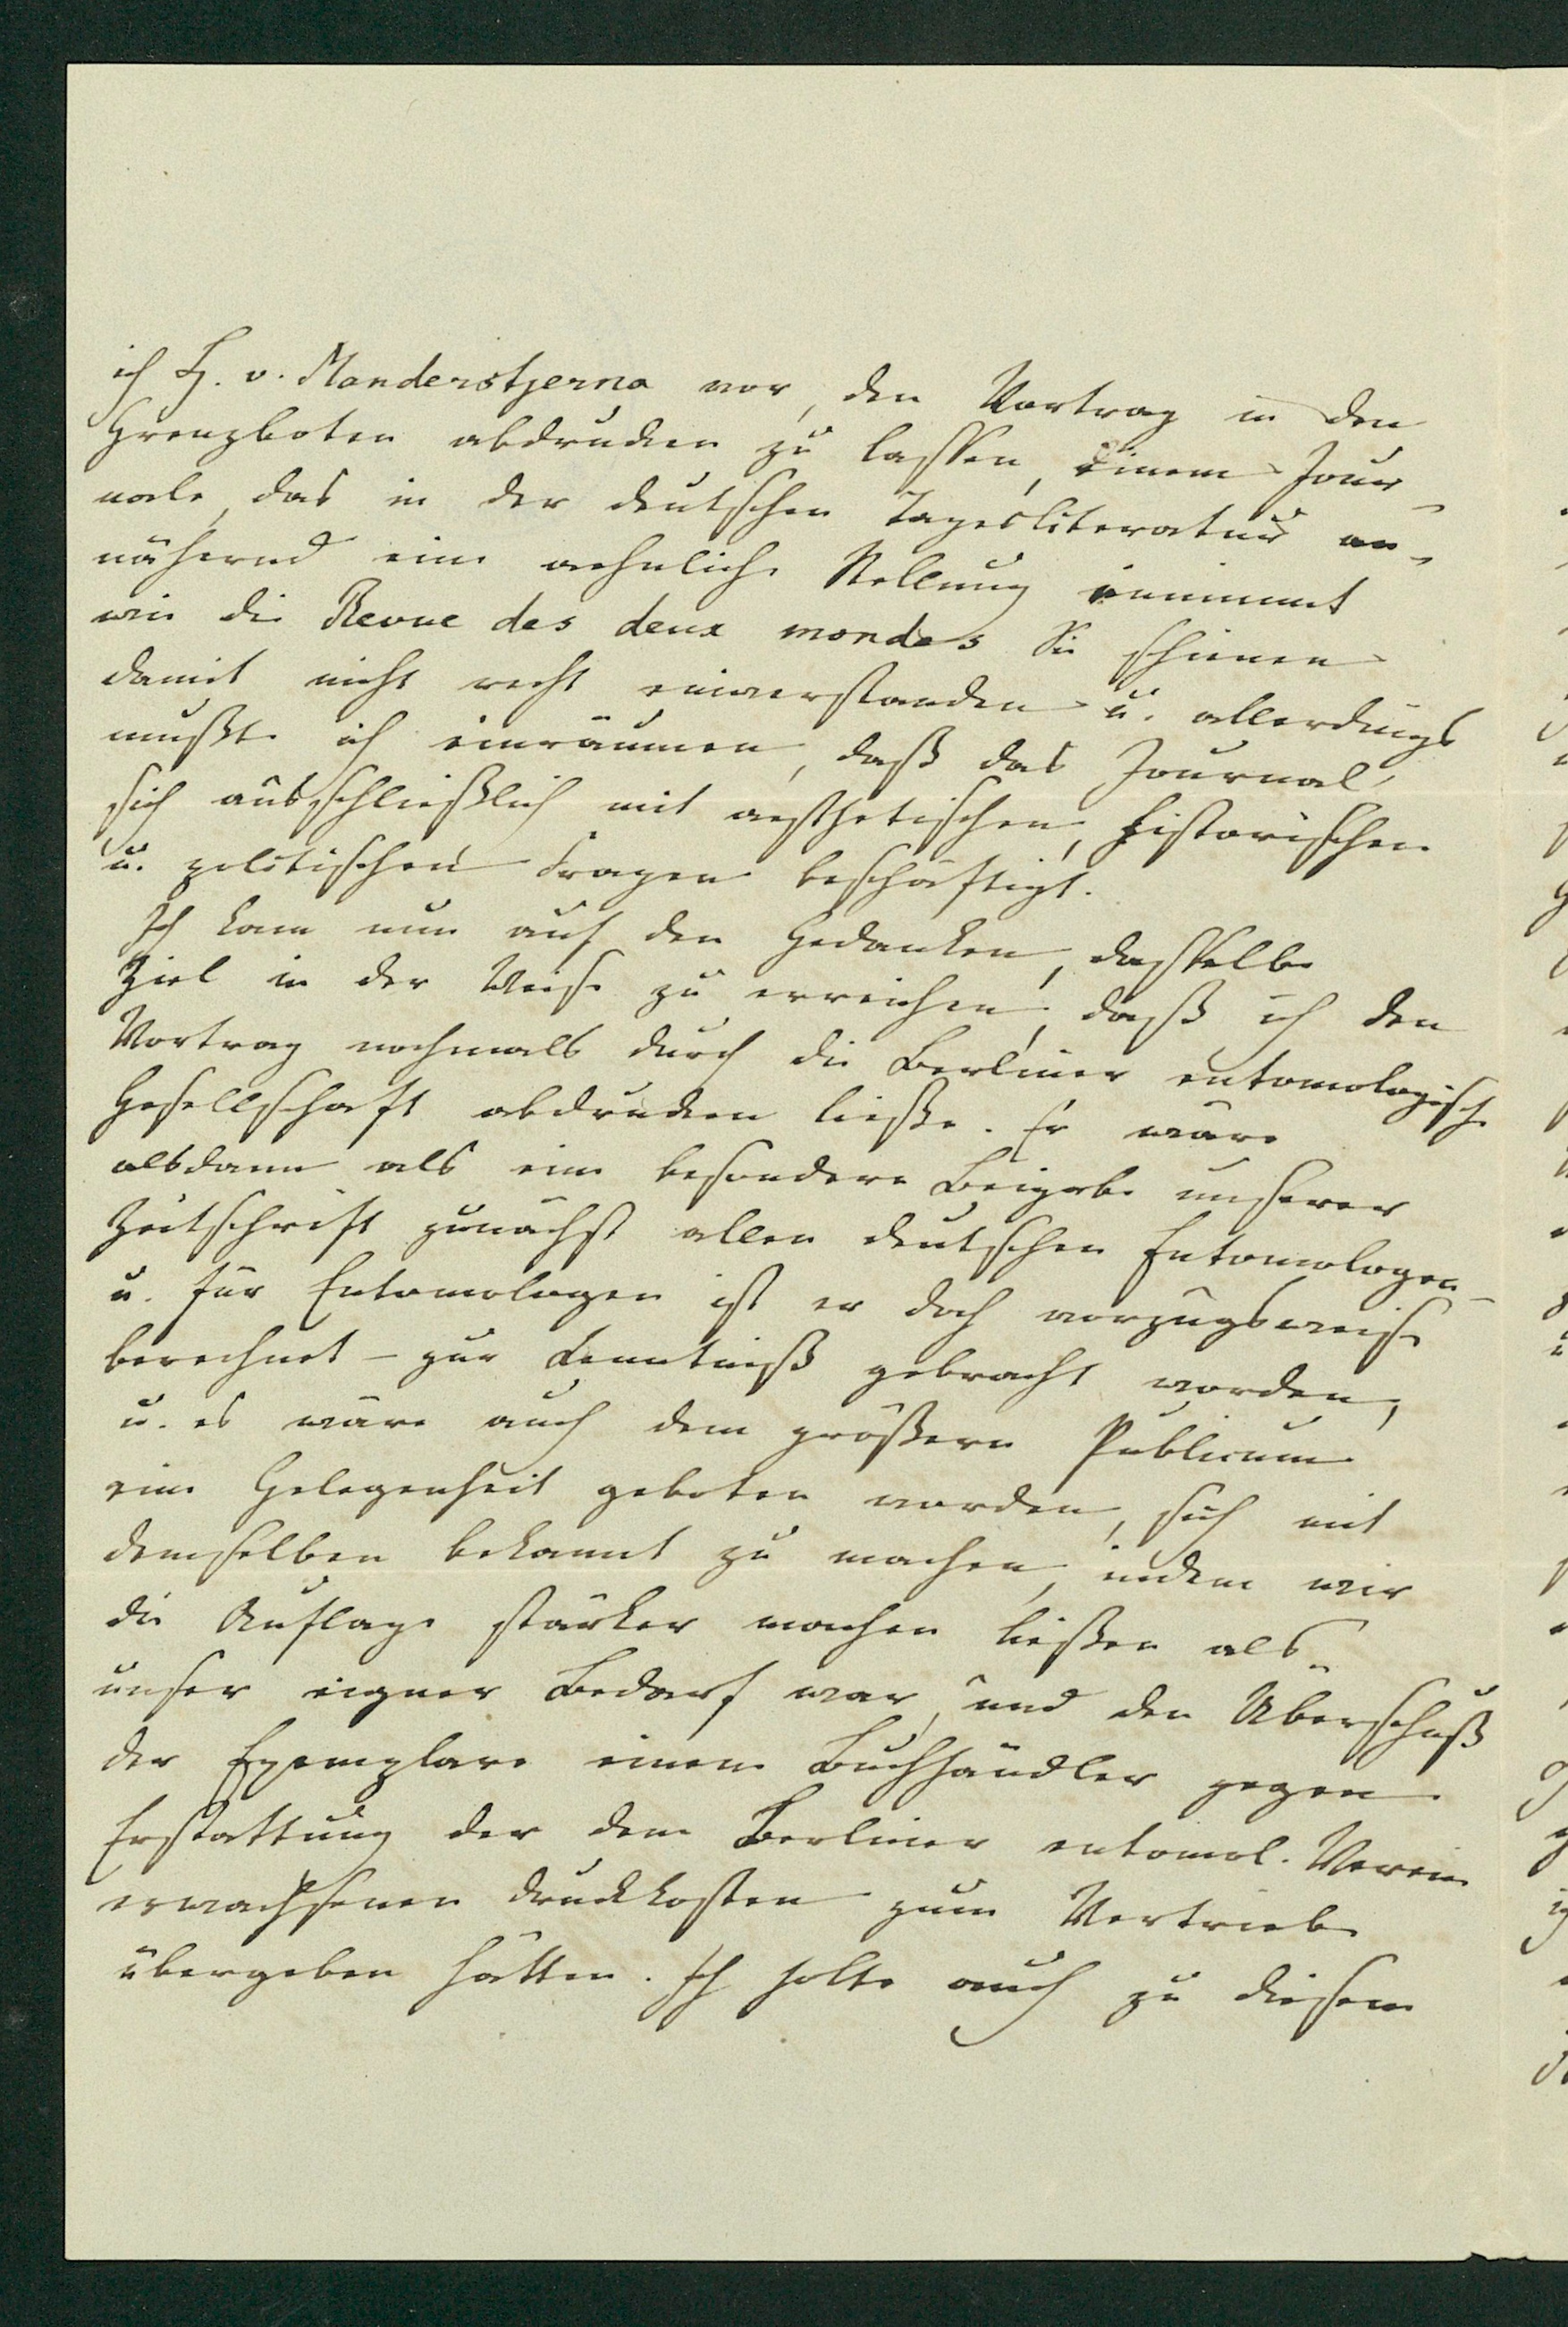 ich H. v. Manderstjerna vor, den Vortrag in den
Grenzboten abdrucken zu lassen, einem Jour-
nale, das in der deutschen Tagesliteratur an-
nähernd eine aehnliche Stellung einnimmt
wie die Revue des deux mondes Sie schienen
damit nicht recht einverstanden u. allerdings
mußte ich einräumen, daß das Journal
sich ausschließlich mit aesthetischen, historischen
u. politischen Fragen beschäftigt.
Ich kam nun auf den Gedanken, dasselbe
Ziel in der Weise zu erreichen, daß ich den
Vortrag nochmals durch die Berliner entomologische
Gesellschaft abdrucken ließe. Er wäre
alsdann als eine besondere Beigabe unserer
Zeitschrift zunächst allen deutschen Entomologen –
u. für Entomologen ist er doch vorzugsweise
berechnet – zur Kenntniß gebracht worden,
u. es wäre auch dem größern Publicum
eine Gelegenheit geboten worden, sich mit
demselben bekannt zu machen, indem wir
die Auflage stärker machen ließen als
unser eigner Bedarf war, und den Überschuß
der Exemplare einem Buchhändler gegen
Erstattung der dem Berliner entomol. Verein
erwachsenen Druckkosten zum Vertriebe
übergeben hätten. Ich holte auch zu diesem